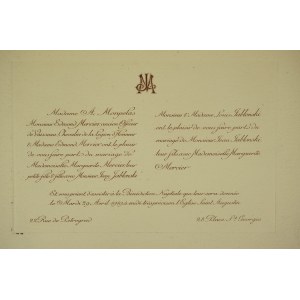 Madame A.
Monsieur Edmond Mercier ancien Officier
de Chevalier de la Légion d'Honneur
& Madame Edmond Mercier ont le plaisir
de vous faire part du mariage de
Mademoiselle Marguerite Mercier leur
petite fille & fille avec Monsieur Jean Jablonski
Monsieur & Madame Louis Jablonski
ont le plaisir de vous faire part du
mariage de Monsieur Jean Jablonski
leur fils avec Mademoiselle Marguerite
Mercier
Et vous prient d'assister à la Bénédiction Nuptiale qui leur sera donnée
le Mardi Avril en l'Eglise Saint
Rue de
Place St Georges